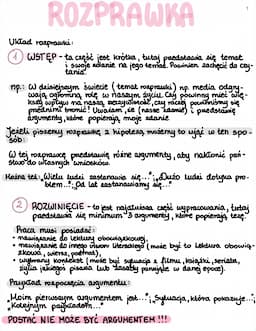 ROZPRAWKA
Układ rozprawki:
1 WSTĘP - ta część jest krótka, tutaj przedstawia się temat
i swoje zdanie na jego temat. Powinien zachęcić do czy-
tania.
np.: W dzisiejszym świecie (temat rozprawki) np. media odgry-
wają ogromną rolę w naszym życiu. Czy powinny mieć wię-
kszy wpływ na naszą rzeczywistość, czy raczej powinniśmy się
przed nimi bronić? Uważam, że (nasze zdanie) i przedstawię
argumenty, które popierają moje zdanie.
Jeżeli piszemy rozprawkę z hipotezą możemy to ująć w ten spo-
sób:
W tej rozprawce przedstawię różne argumenty, aby nakłonić pań-
stwo do własnych wniosków.
Można też: „Wielu ludzi zastanawia się...", „Dużo ludzi dotyka pro-
blem...", „Od lat zastanawiamy się..."
2 ROZWINIĘCIE - to jest najdłuższa część wypracowania, tutaj
przedstawia się minimum 3 argumenty, które popierają tezę.
Praca musi posiadać:
• nawiązanie do lektury obowiązkowej,
• nawiązanie do innego utworu literackiego (może być to lektura obowią-
zkowa, wiersz, powieść),
• wybrany kontekst (może być sytuacja z filmu, książki, serialu,
życia jakiegoś pisarza lub zasady panujące w danej epoce).
Przykład rozpoczęcia argumentu:
„Moim pierwszym argumentem jest...", „Sytuacja, która pokazuje...",
„Kolejnym przykładem..."
POSTAĆ NIE MOŻE BYĆ ARGUMENTEM!!!